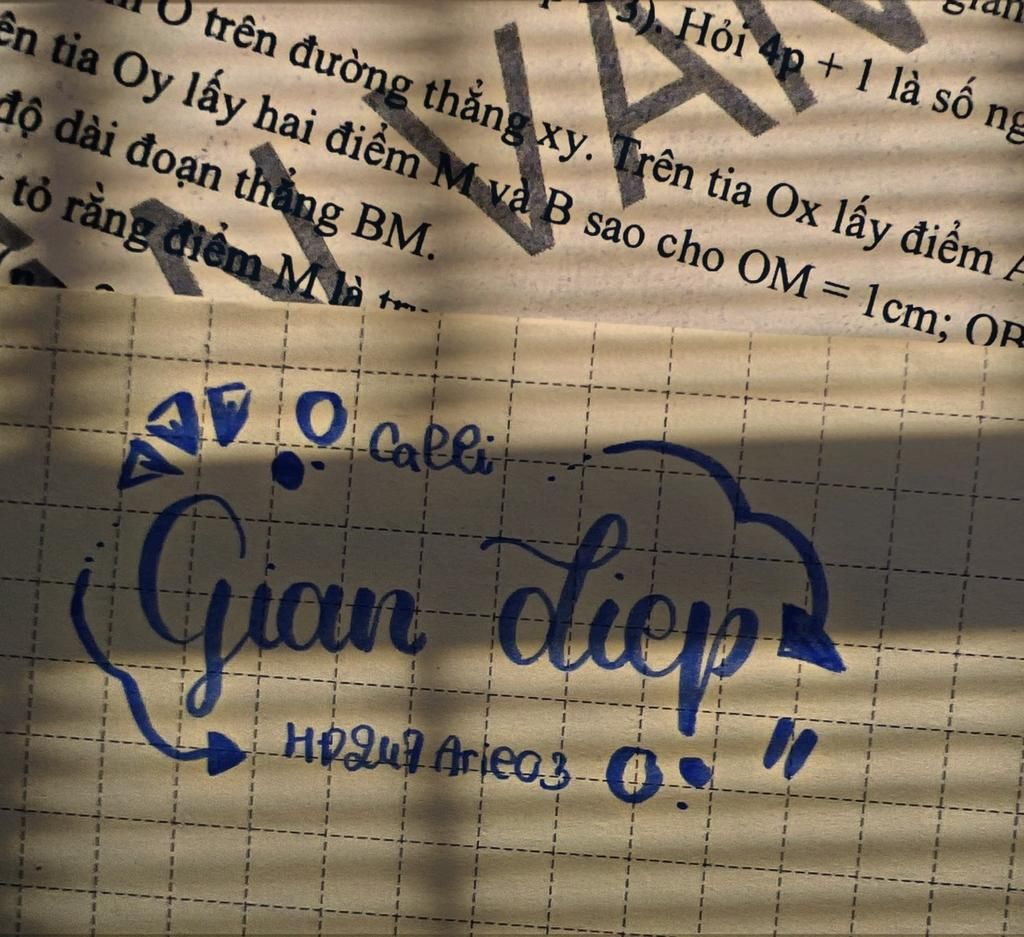 O trên đường thẳng xy. Trên tia Ox lấy điểm A
3). Hỏi 4p + 1 là số
ên tia Oy lấy hai điểm M và B sao cho OM = 1cm; OB
độ dài đoạn thẳng BM.
tỏ rằng điểm M là
VĂN
Calli
Gian diep
HD247 Arie03